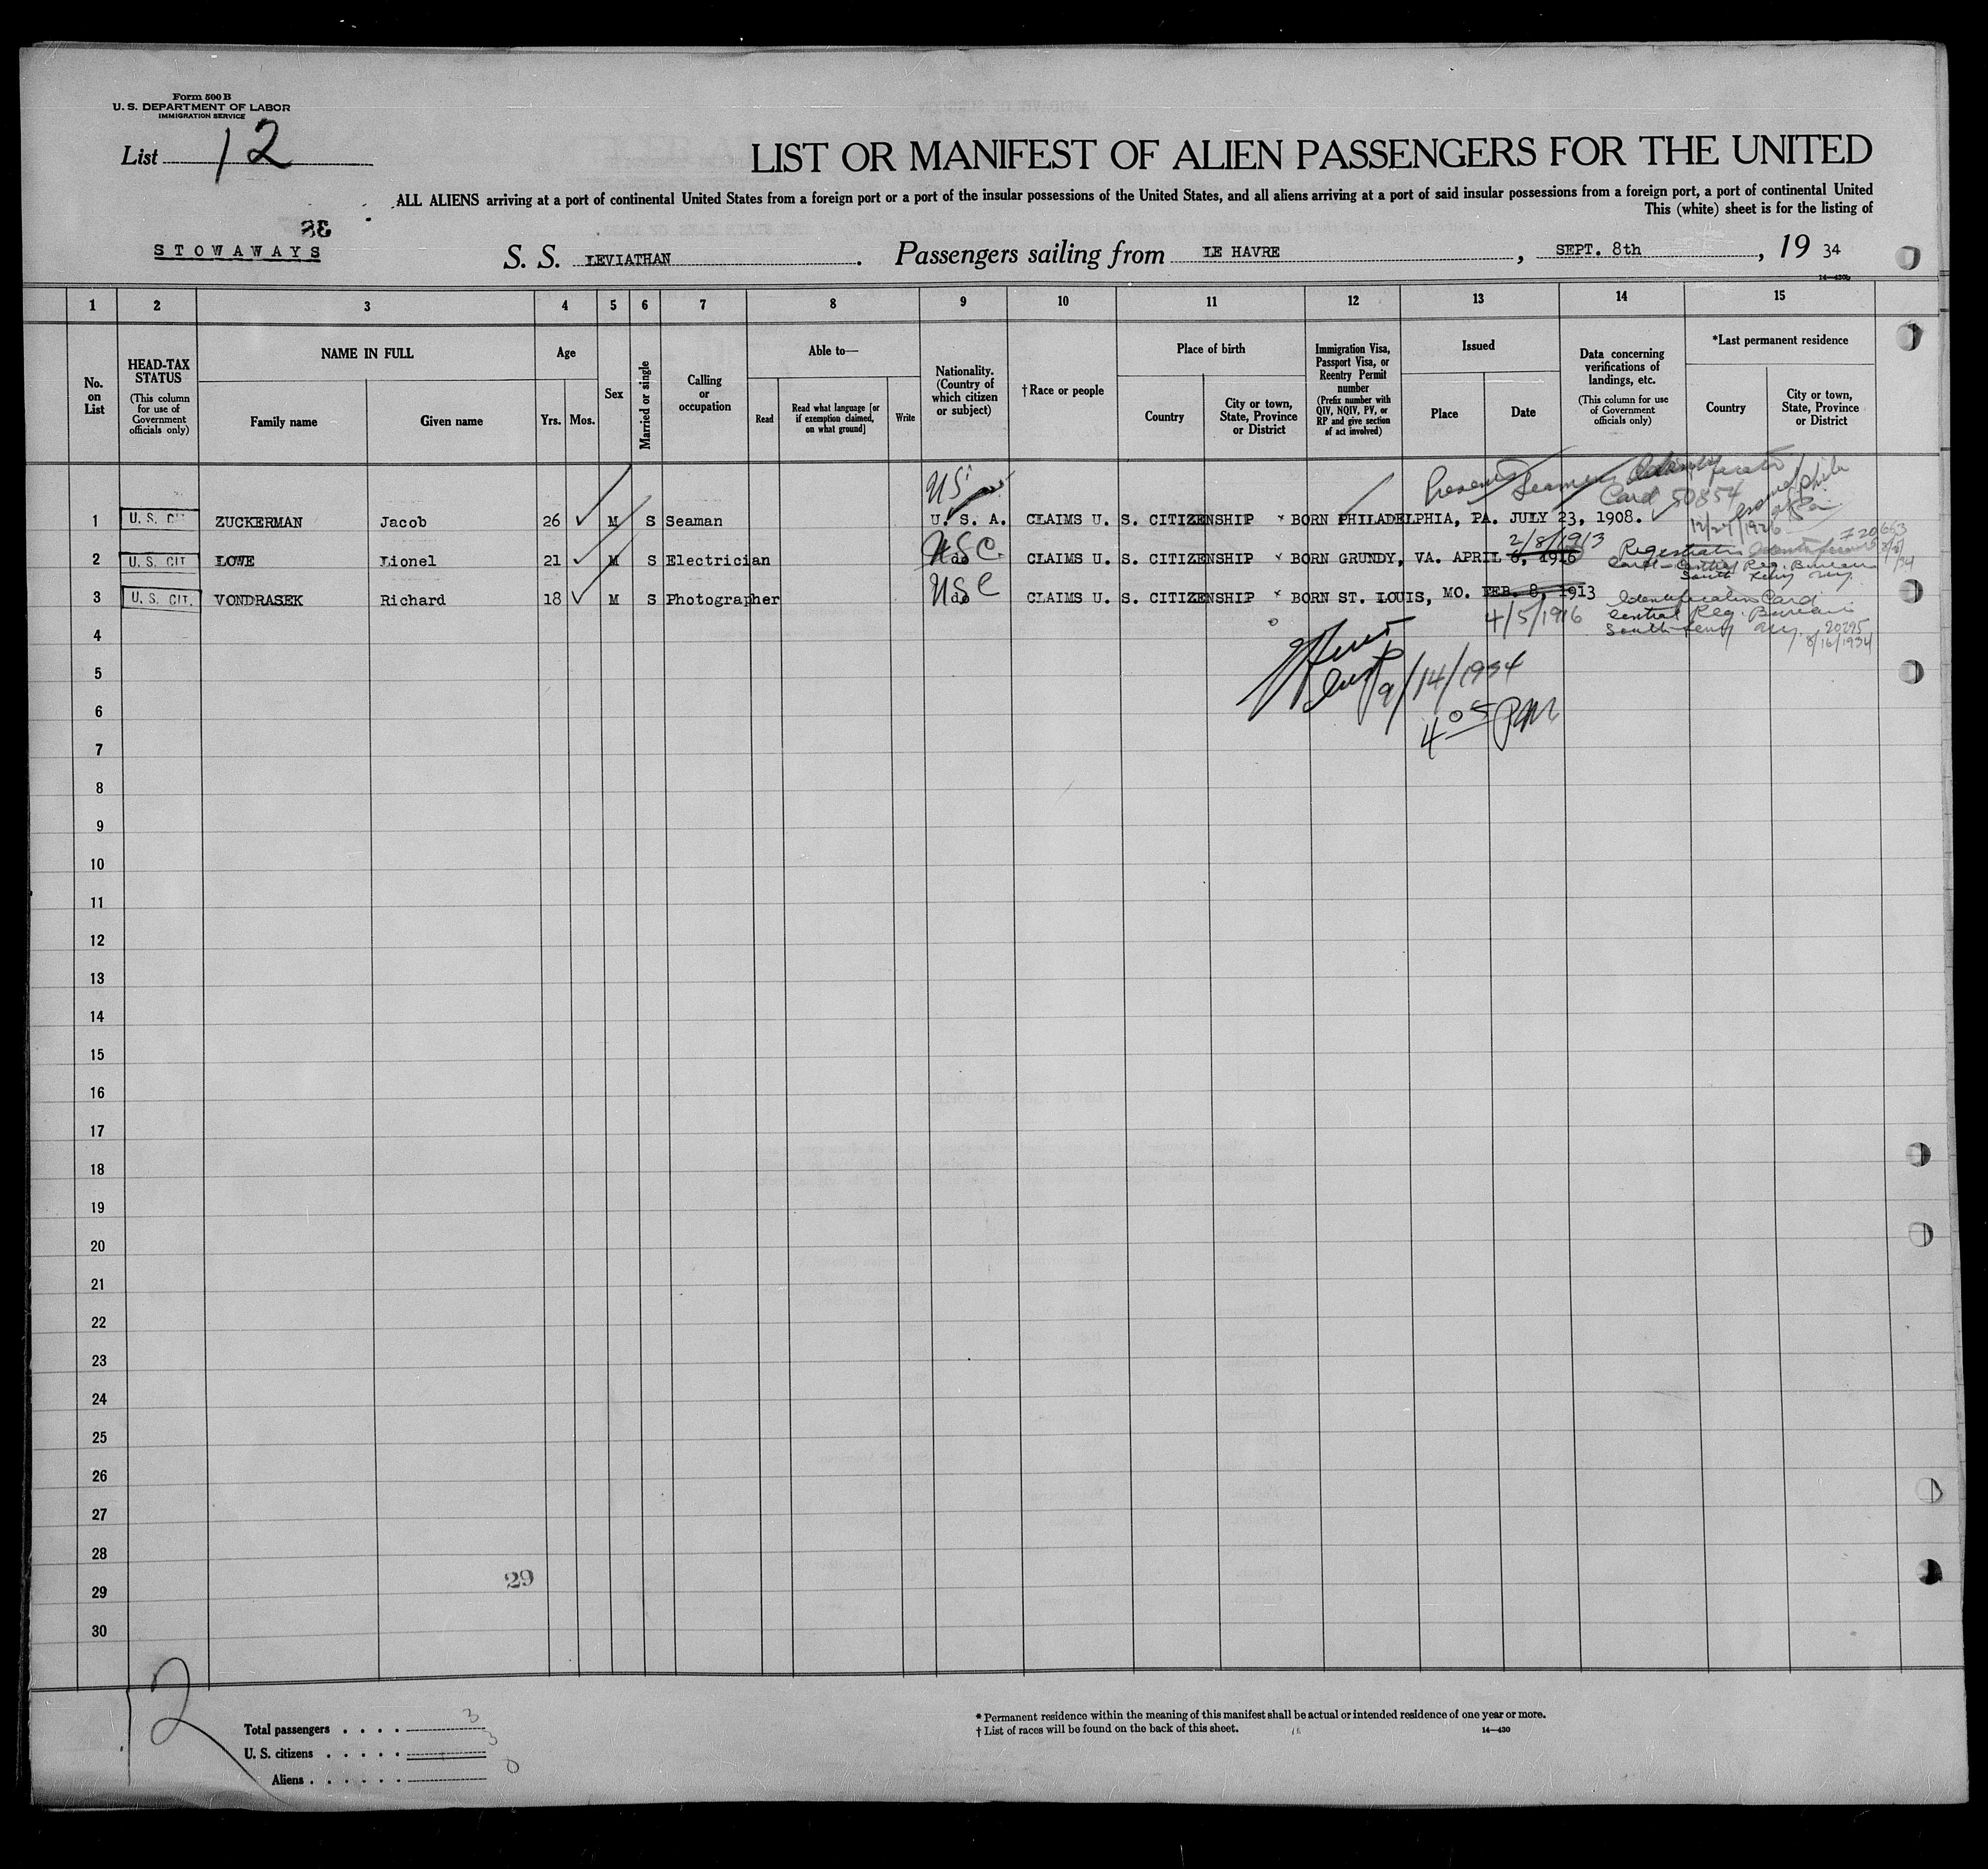 Form 500 B
U. S. DEPARTMENT OF LABOR
IMMIGRATION SERVICE
List 12
LIST OR MANIFEST OF ALIEN PASSENGERS FOR THE UNITED
ALL ALIENS arriving at a port of continental United States from a foreign port or a port of the insular possessions of the United States, and all aliens arriving at a port of said insular possessions from a foreign port, a port of continental United
This (white) sheet is for the listing of
STOWAWAYS
S. S. LEVIATHAN. Passengers sailing from LE HAVRE, SEPT. 8th, 19 34
1 2 3 4 5 6 7 8 9 10 11 12 13 14 15
No. on List
HEAD-TAX STATUS
(This column for use of Government officials only)
NAME IN FULL
Family name
Given name
Age
Yrs. Mos.
Sex
Married or single
Calling or occupation
Able to—
Read
Read what language [or if exemption claimed, on what ground]
Write
Nationality. (Country of which citizen or subject)
†Race or people
Place of birth
Country
City or town, State, Province or District
Immigration Visa, Passport Visa, or Reentry Permit number
(Prefix number with QIV, NQIV, PV, or RP and give section of act involved)
Issued
Place
Date
Data concerning verifications of landings, etc.
(This column for use of Government officials only)
*Last permanent residence
Country
City or town, State, Province or District
Card 50854
12/27/1926
1 U. S. CIT ZUCKERMAN Jacob 26 M S Seaman U. S. A. CLAIMS U. S. CITIZENSHIP BORN PHILADELPHIA, PA. JULY 23, 1908.
2/8/1913
2 U. S. CIT LOWE Lionel 21 M S Electrician do USC CLAIMS U. S. CITIZENSHIP BORN GRUNDY, VA. APRIL 6, 1916
3 U. S. CIT. VONDRASEK Richard 18 M S Photographer do USC CLAIMS U. S. CITIZENSHIP BORN ST. LOUIS, MO. FEB. 8, 1913
Identification Card
4/5/1916
Central Reg. Bureau
20295
8/16/1934
4
5
9/14/1934
6
4 05 PM
7
8
9
10
11
12
13
14
15
16
17
18
19
20
21
22
23
24
25
26
27
28
29
29
30
12
Total passengers . . . . 3
U. S. citizens . . . . . 3
Aliens . . . . . . 0
* Permanent residence within the meaning of this manifest shall be actual or intended residence of one year or more.
† List of races will be found on the back of this sheet.
14—430